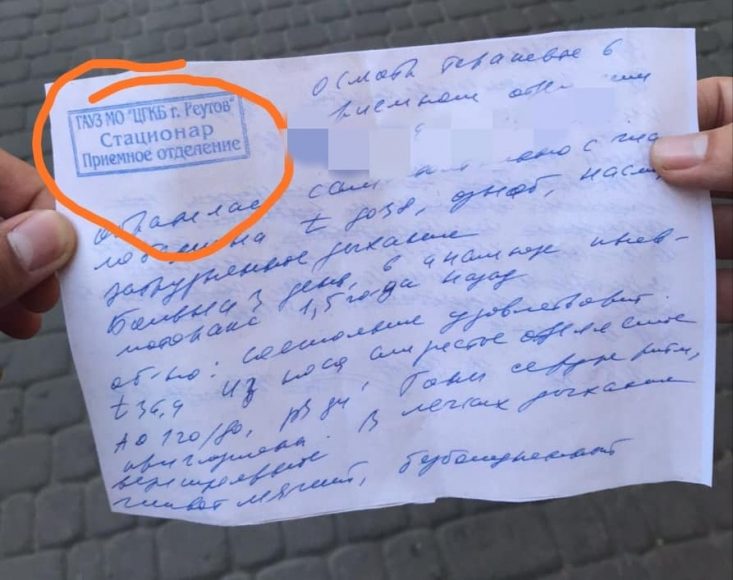 ГАУЗ МО "ЦГКБ г. Реутов"
Стационар
Приемное отделение
Осмотр терапевта в
приемном
обратилась самостоятельно с
на t до 38, озноб,
затрудненное дыхание
Больна 3 день, в анамнезе пнев-
моторакс 1,5 года назад
об-но: состояние удовлетворит.
t 36,4 из носа слизистое отделяемое
АД 120/80, ps 84, Тоны сердца ритм,
приглушены. В легких дыхание
везикулярное
живот мягкий, безболезненный